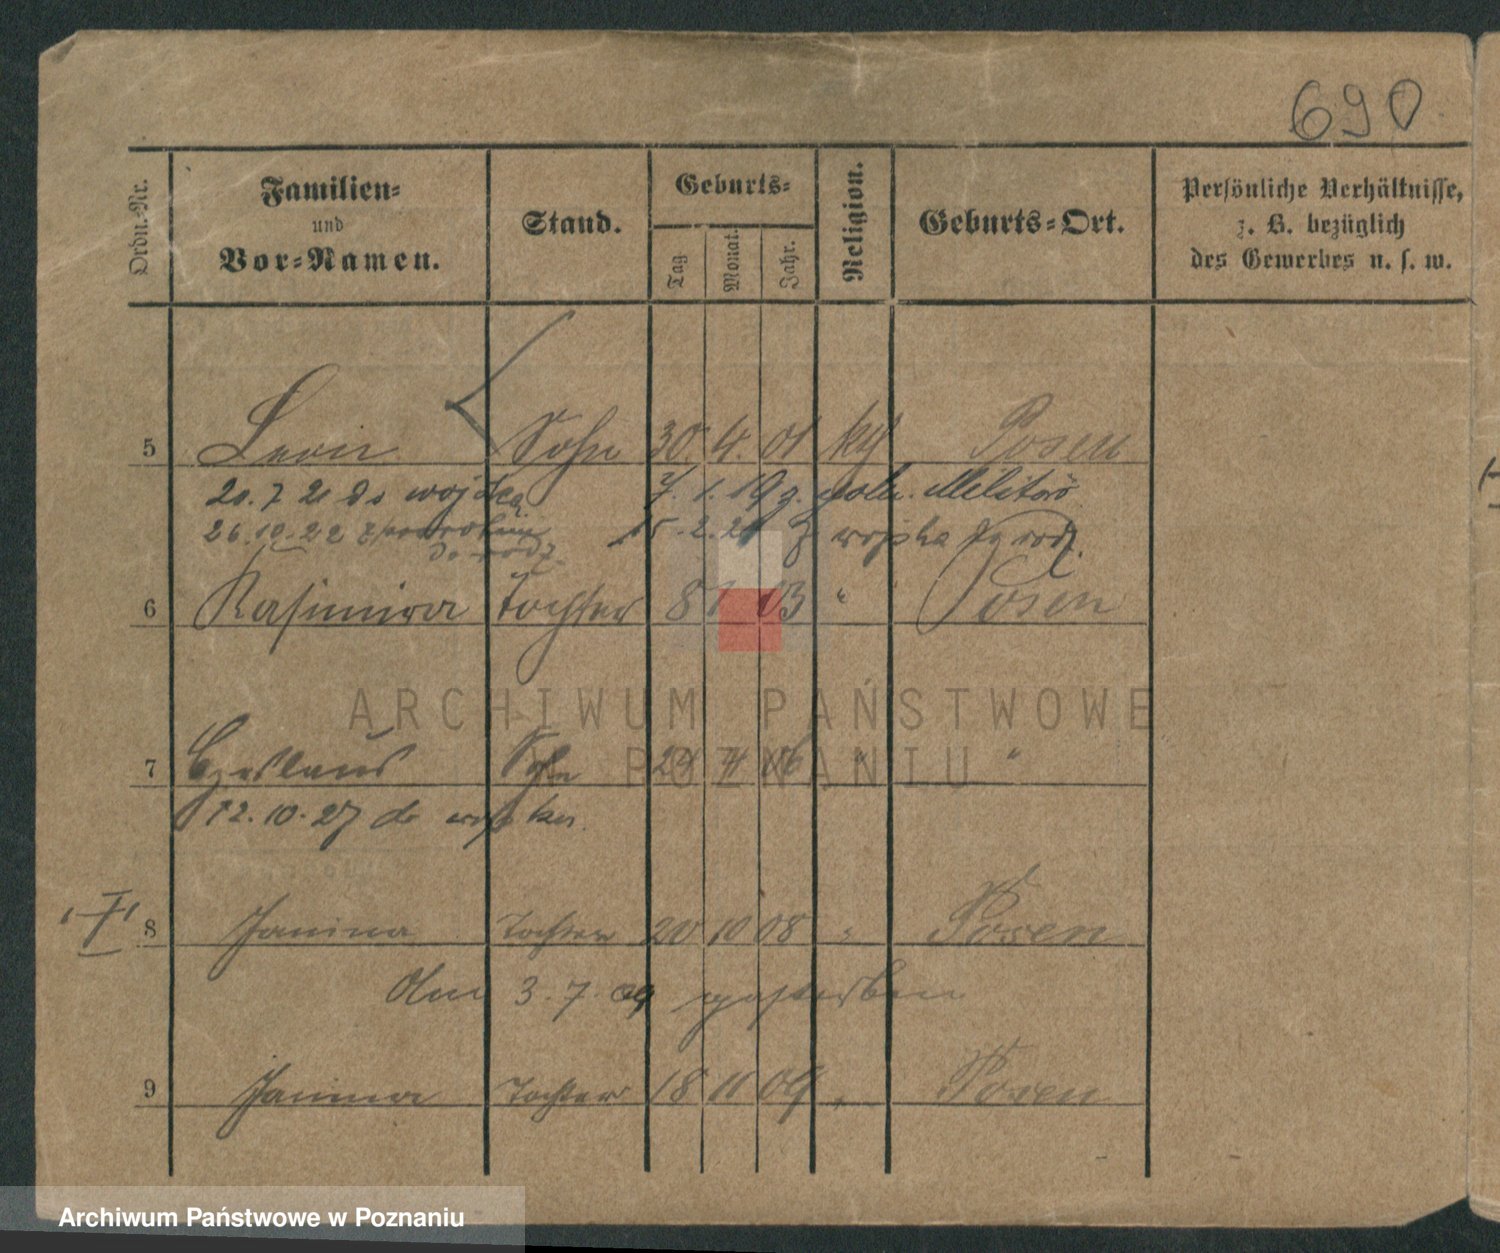 690
Ordn.-Nr. Familien- und Vor-Namen. Stand. Geburts- Tag Monat. Jahr. Religion. Geburts-Ort. Persönliche Verhältnisse, z. B. bezüglich des Gewerbes u. s. w.
5 Leon Sohn 30. 4. 01 kth Posen
20. 7 21 do wojska 7. 1. 19 z. poln. Militär
26.10.22 z powrotem 15. 2. 21 z wojska do rodz.
do rodz.
6 Kasimira Tochter 8 1 03 " Posen
ARCHIWUM PAŃSTWOWE
7 Czeslaus Sohn 29 7 06 " "
W POZNANIU
12. 10. 27 do wojska.
8 Janina Tochter 20 10 08 " Posen
Am 3. 7. 09 gestorben
9 Janina Tochter 18 11 09 " Posen
Archiwum Państwowe w Poznaniu